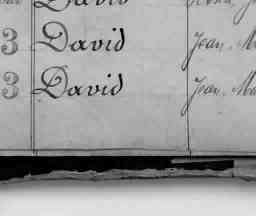 David
3 David Jean. M
3 David Jean. M